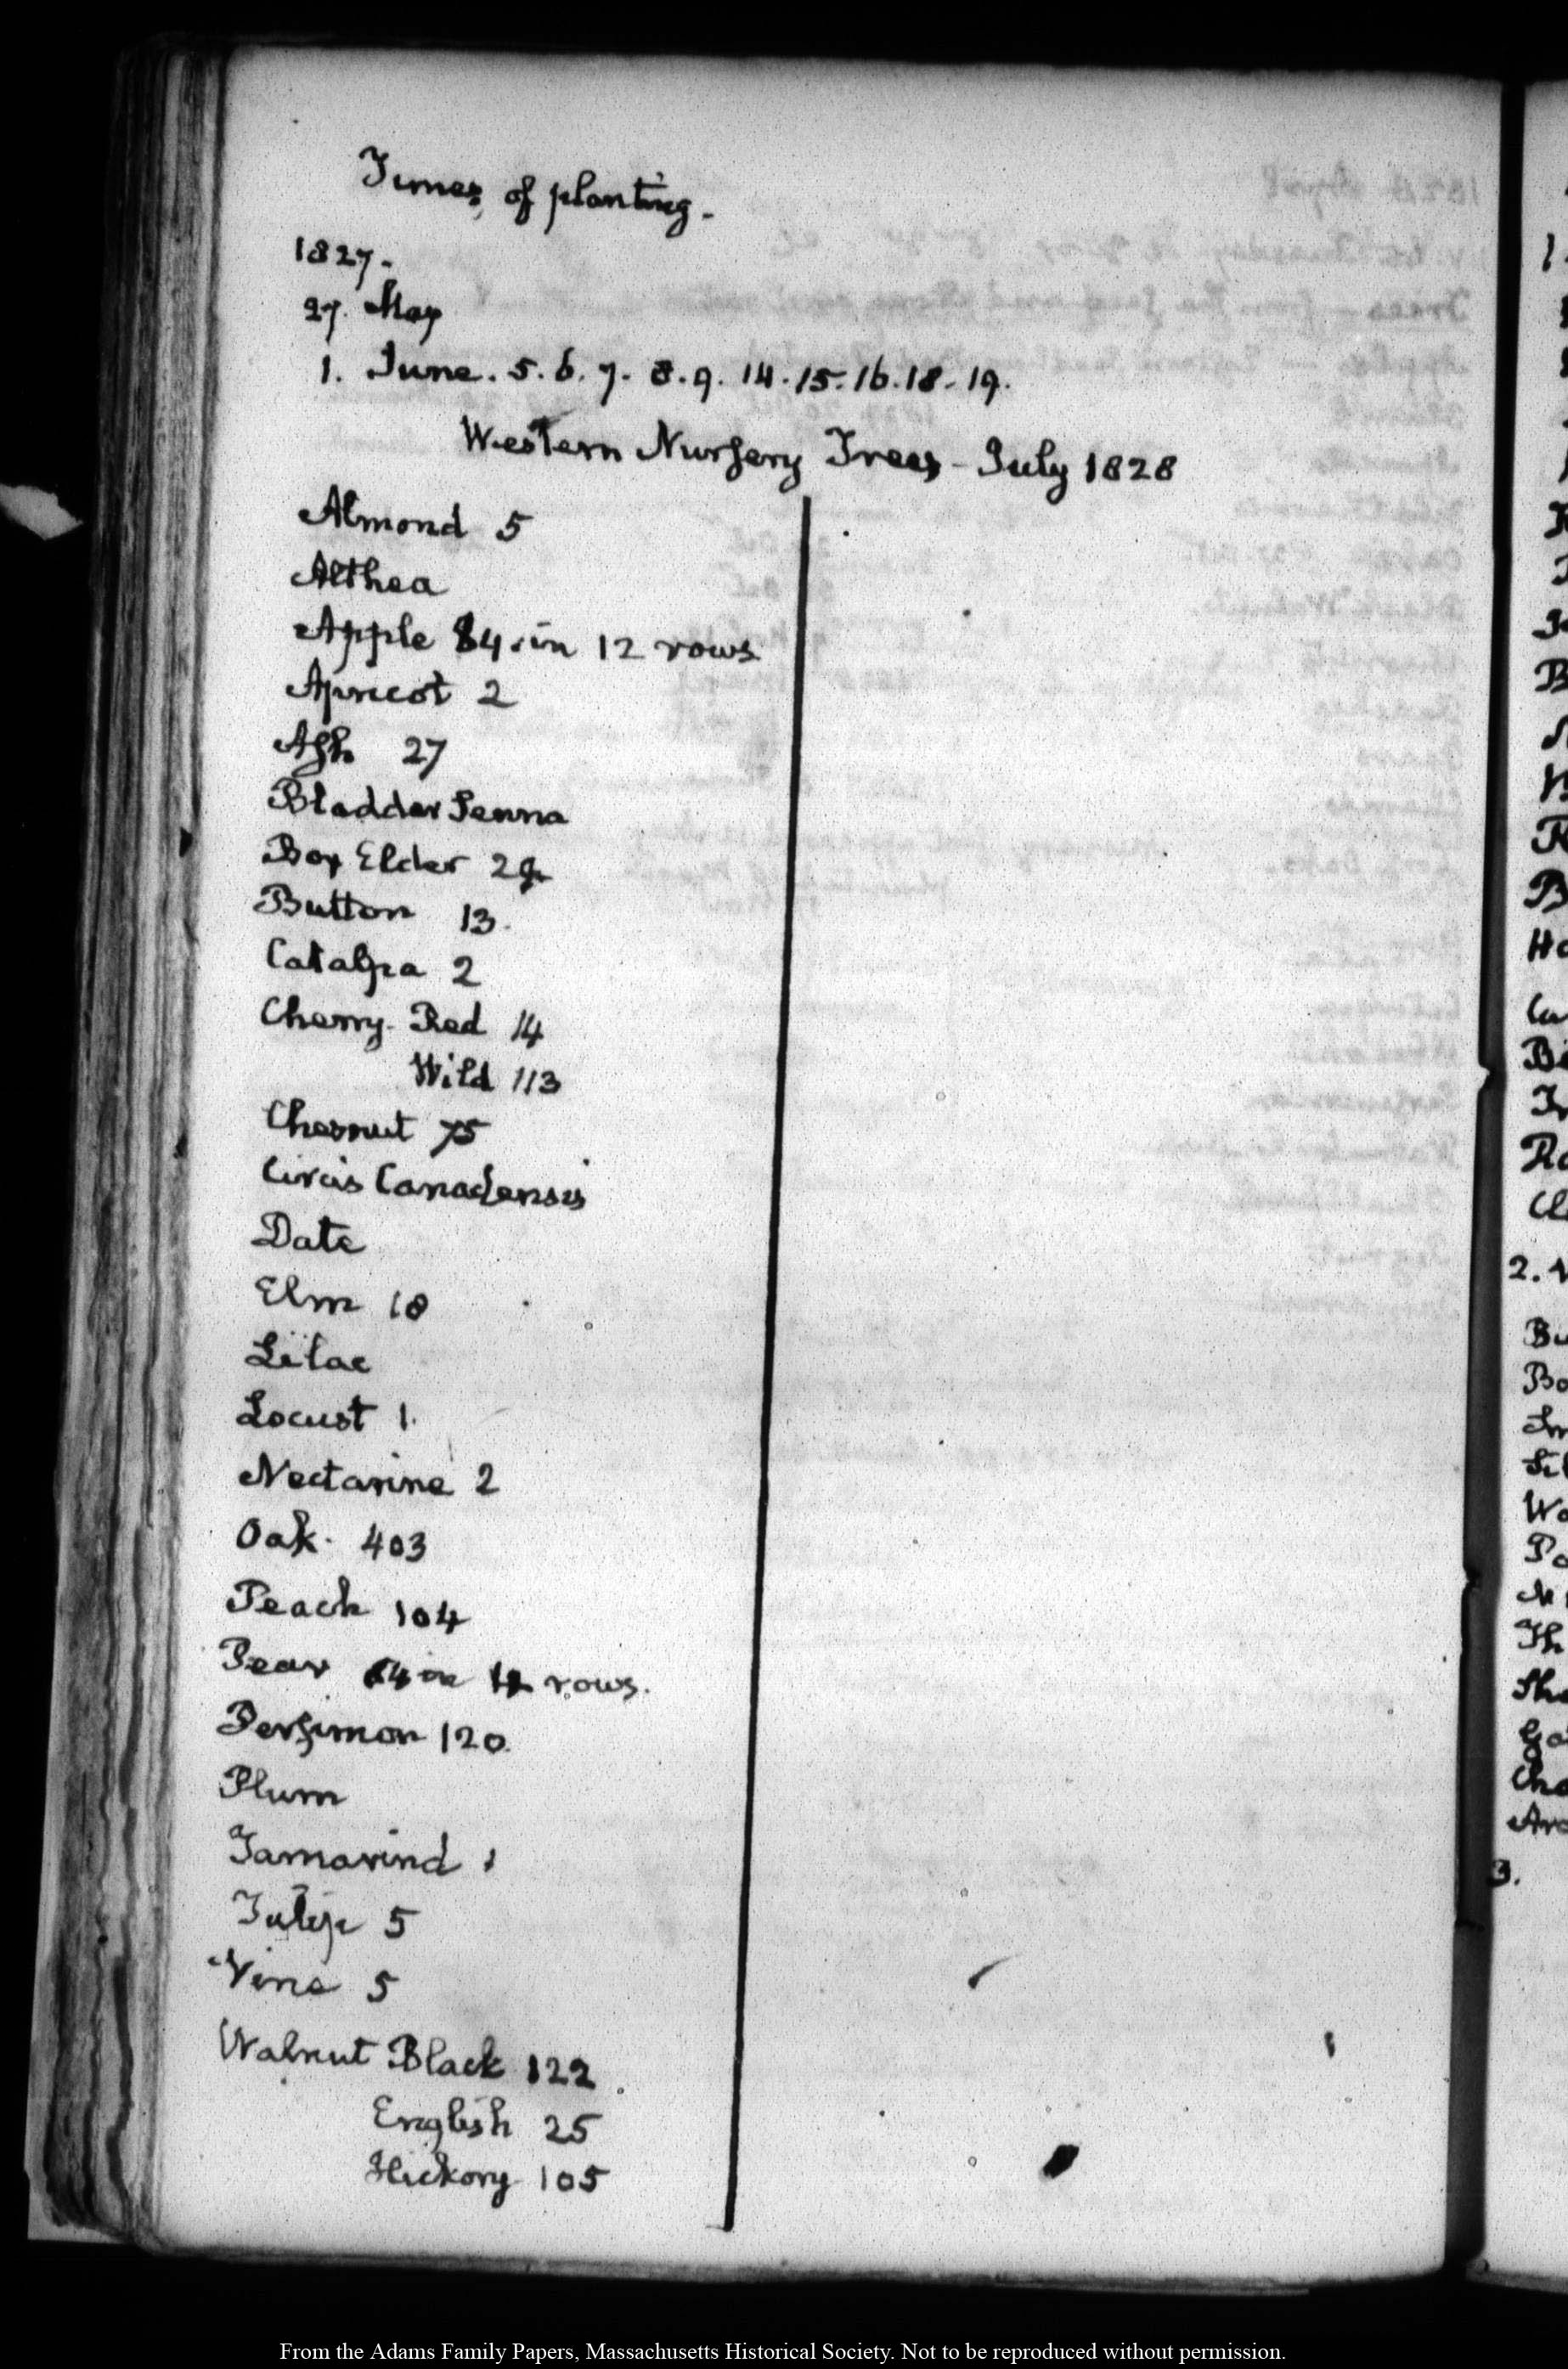 Times of planting.
1827.
27. May
1. June. 5. 6. 7. 8. 9. 14. 15. 16. 18. 19.
Western Nursery Trees - July 1828
Almond 5
Althea
Apple 84 in 12 rows
Apricot 2
Ash 27
Bladder Senna
Box Elder
Button 13.
Catalpa 2
Cherry. Red 14
Wild 113
Chesnut 75
Circis Canadensis
Date
Elm 18
Lilac
Locust 1.
Nectarine 2
Oak. 403
Peach 104
Pear in rows.
Persimon 120
Plum
Tamarind 1
Tulip 5
Vine 5
Walnut Black 122
English 25
Hickory 105
From the Adams Family Papers, Massachusetts Historical Society. Not to be reproduced without permission.